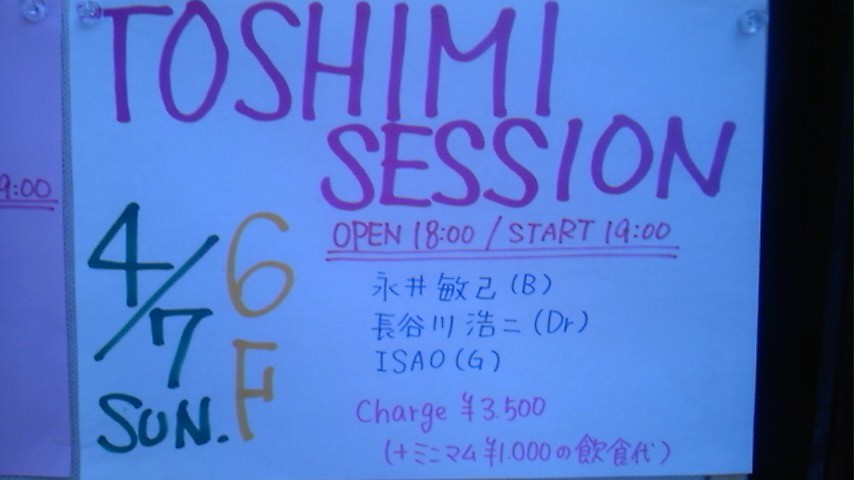 TOSHIMI
SESSION
9:00
OPEN 18:00 / START 19:00
4/7
SUN.
6F
永井敏己(B)
長谷川浩二(Dr)
ISAO(G)
Charge ¥3.500
(+ミニマム¥1.000の飲食代)